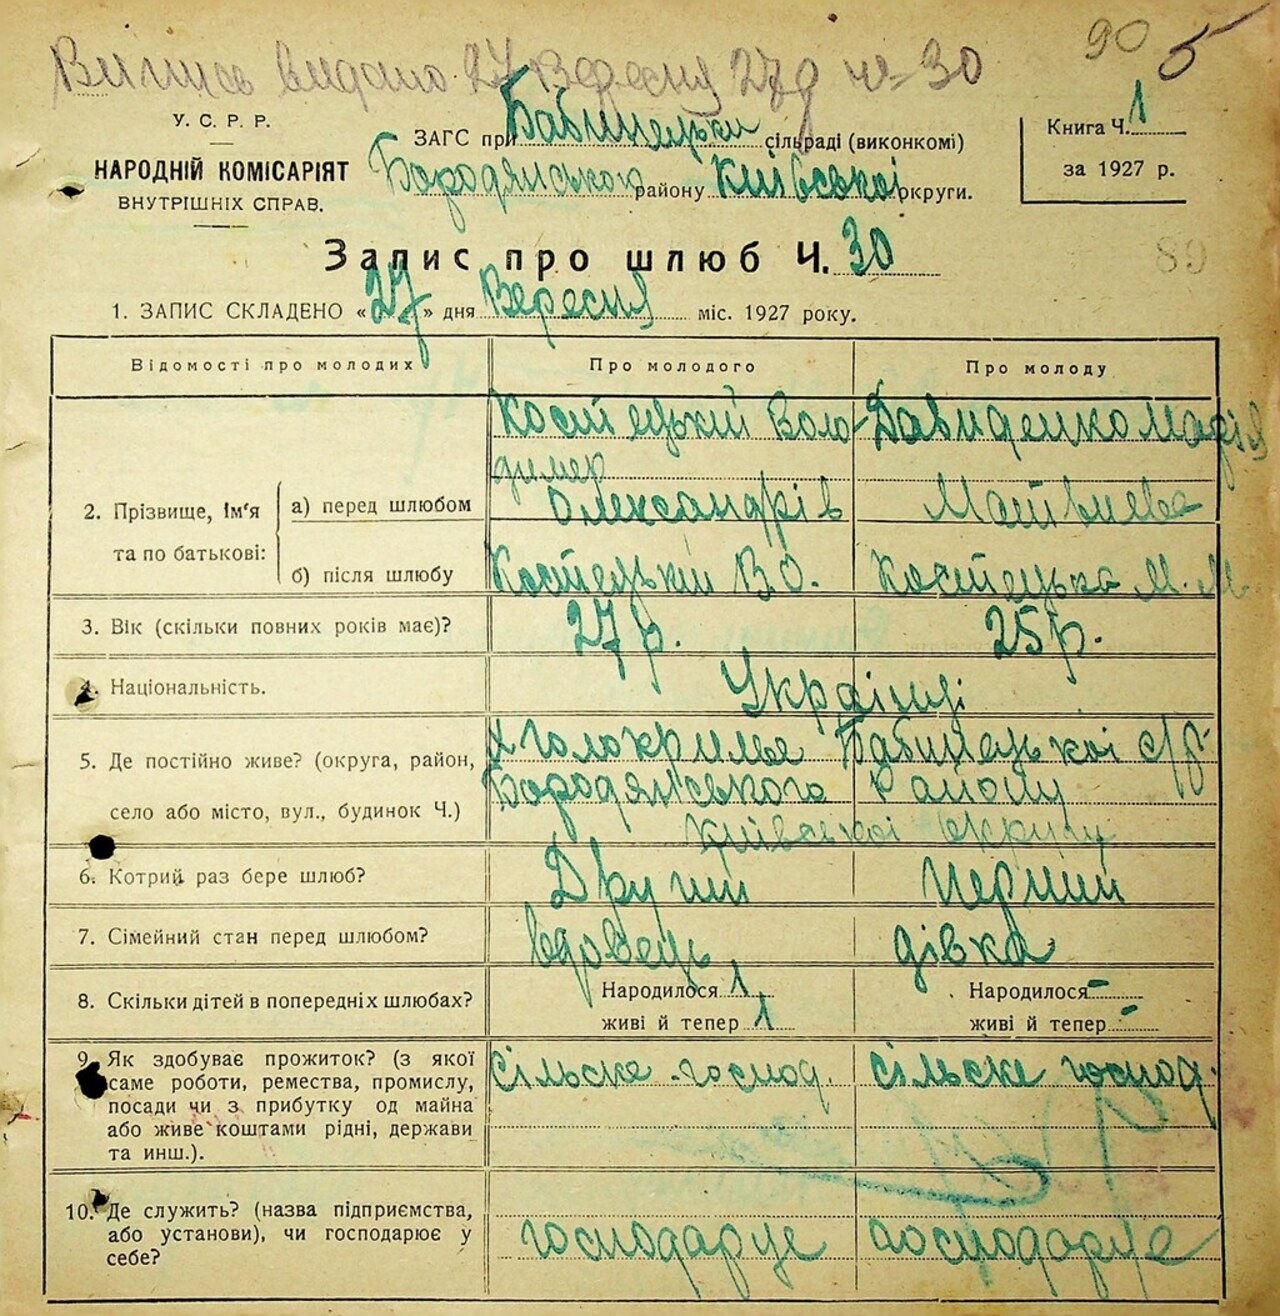 Випись видано 27 Вересня 27 р № 30
90 5
У. С. Р. Р.
НАРОДНІЙ КОМІСАРІЯТ
ВНУТРІШНІХ СПРАВ.
ЗАГС при Бабинецькій сільраді (виконкомі)
Бородянського району Київської округи.
Книга Ч. 1
за 1927 р.
Запис про шлюб Ч. 30
89
1. ЗАПИС СКЛАДЕНО «27» дня Вересня міс. 1927 року.
Відомості про молодих
Про молодого
Про молоду
2. Прізвище, ім'я та по батькові:
а) перед шлюбом
Костецький Воло-
димер
Олександрів
Давиденко Марія
Матвиева
б) після шлюбу
Костецькій В.О.
Костецька М. М.
3. Вік (скільки повних років має)?
27 р.
25 р.
4. Національність.
Українці
5. Де постійно живе? (округа, район,
село або місто, вул., будинок Ч.)
Бабинецької с/р
Бородянського Району
Київської округи
6. Котрий раз бере шлюб?
Другий
Перший
7. Сімейний стан перед шлюбом?
вдовець
дівка
8. Скільки дітей в попередніх шлюбах?
Народилося 1
живі й тепер 1
Народилося -
живі й тепер -
9. Як здобуває прожиток? (з якої
саме роботи, ремества, промислу,
посади чи з прибутку од майна
або живе коштами рідні, держави
та инш.).
сільске господ.
сільске господ.
10. Де служить? (назва підприємства,
або установи), чи господарює у
себе?
господарує
господарує